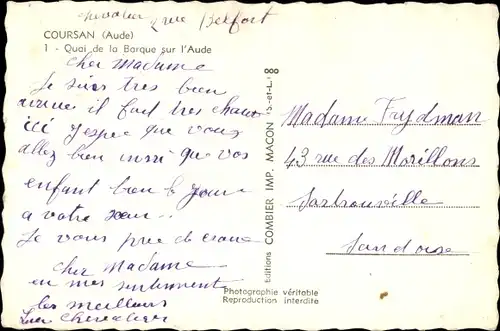 chevalier rue Belfort
COURSAN (Aude)
1 - Quai de la Barque sur l'Aude
cher Madame
Je suis tres bien
arrivee il fait tres chaux
ici J'espee que vous
allez bien insi que vos
enfant bien le
a votre
Je vous prie de
cher Madame
en mes sentiment
les meilleurs
Chevalier
Editions COMBIER IMP. MACON (S.-et-L.)
Madame Frydman
43 rue des Morillons
Sartrouville
Photographie véritable
Reproduction interdite